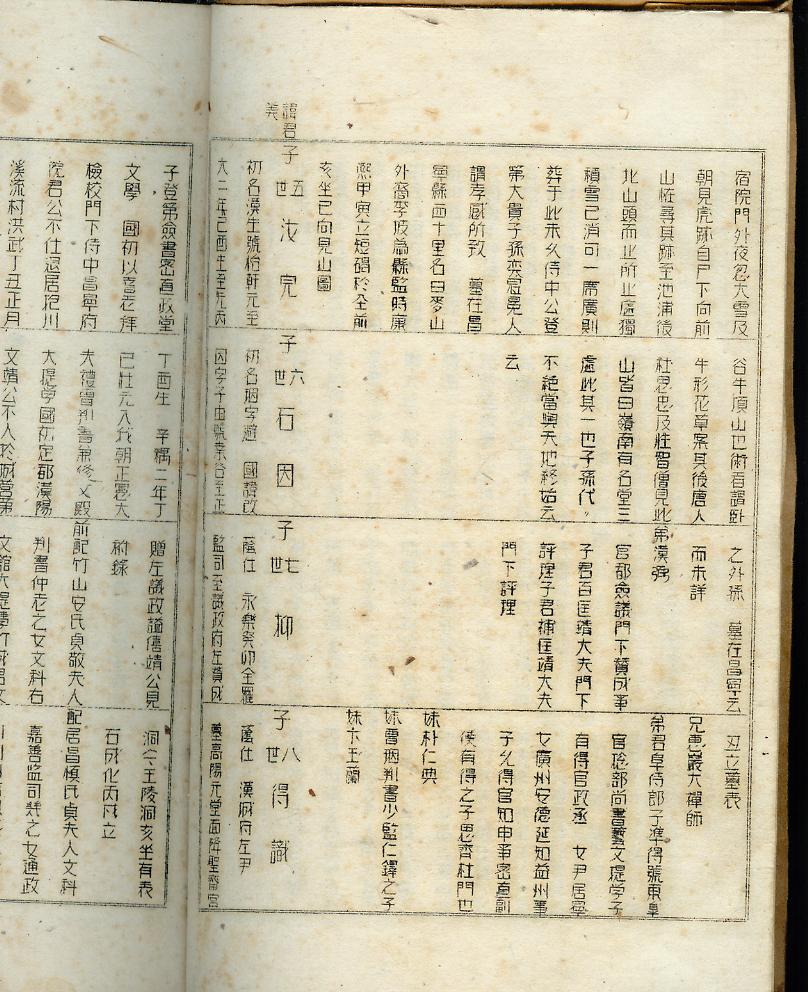 宿院門外夜忽大雪及
朝見虎跡自戶下向前
山恠尋其跡至池浦後
北山頭而止所止處獨
積雪已消可一席廣則
葬于此未久侍中公登
第大貴子孫奕冠冕人
謂孝感所致 墓在昌
寧縣西十里名曰麥山
外裔李成爲縣監時康
熙甲寅立短碣於全前
亥坐巳向見山圖
諱君美
子 五世 汝完
初名漢生號怡軒元至
大二年己酉生至元丙
谷牛頂山也術者謂卧
牛形花草案其後唐人
杜思忠及性智僧見此
山皆曰嶺南有名堂三
處此其一也子孫代〃
不絶當與天地終始云
云
子 六世 石因
初名烟字避 國諱改
因字子由號桑谷至正
之外孫 墓在昌寧云
而未詳
弟漢弼
官都僉議門下贊成事
子君百匡靖大夫門下
評理子君補匡靖大夫
門下評理
子 七世 抑
蔭仕 永樂癸卯全羅
監司至議政府左贊成
丑立墓表
兄恵嚴大禪師
弟君阜侍郎子準得號東皐
官部尚書藝文提學子
有得官政丞 女尹居寧
女廣州安德延知益州事
子允得官知申事密直副
使有得之子思齊杜門也
妹朴仁典
妹曺烟判書少監仁鐸之子
妹卞王蘭
子 八世 得識
蔭仕 漢城府左尹
墓高陽元堂面降聖齋宮
子登第僉書密直政堂
文學 國初以耆老拜
檢校門下侍中昌寧府
院君公不仕退居抱川
溪流村洪武丁丑正月
丁酉生 辛禑二年丁
巳壯元入我朝正憲大
夫禮曺判書兼修文殿
大提學國初定都漢陽
文靖公不入於城營第
贈左議政謚僖靖公見
前錄
前配竹山安氏貞敬夫人
判書仲老之女文科右
洞 王陵洞亥坐有表
石成化丙戌立
配居昌愼氏貞夫人文科
嘉善監司幾之女通政